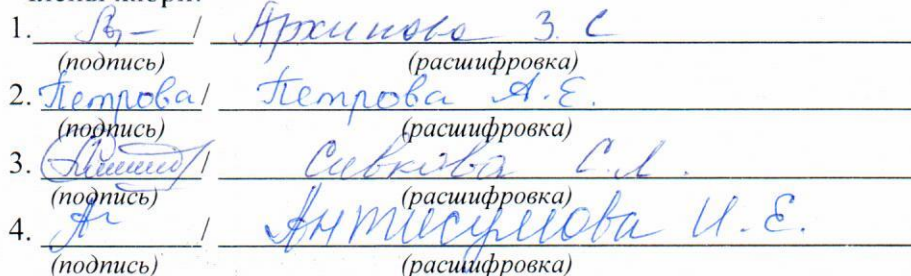 1. / Архипова З. С
(подпись) (расшифровка)
2. Петрова / Петрова А. Е.
(подпись) (расшифровка)
3. / Сивкова С. Л.
(подпись) (расшифровка)
4. / И. Е.
(подпись) (расшифровка)